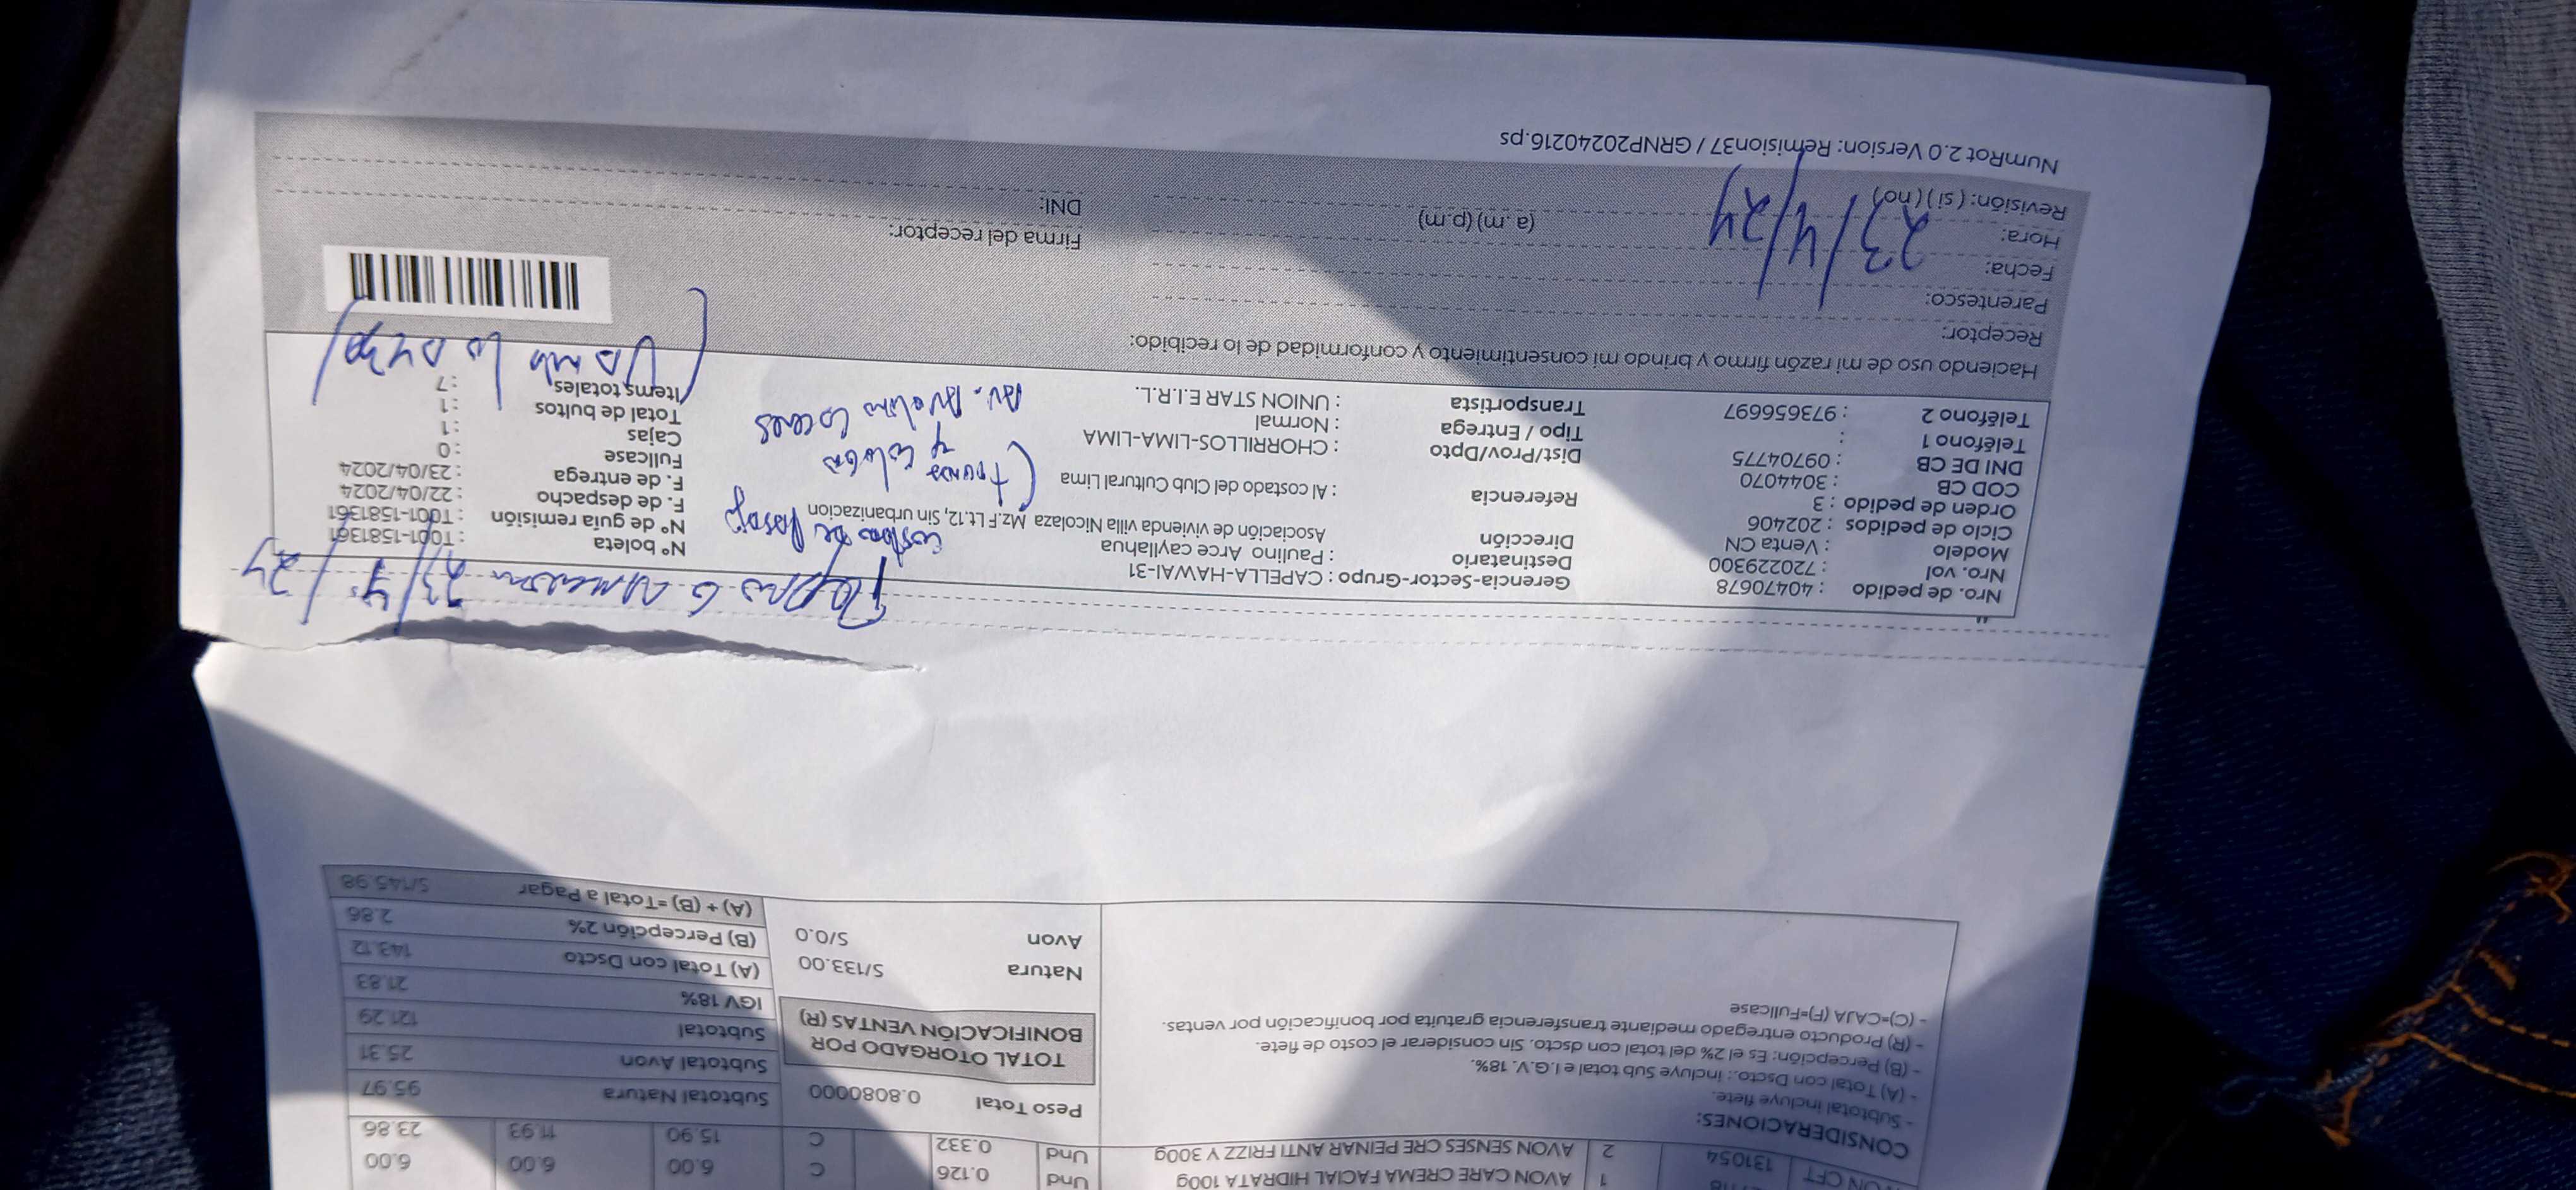 ON CFT 131054 1 AVON CARE CREMA FACIAL HIDRATA 100g Und 0.126 C 6.00 6.00 6.00
2 AVON SENSES CRE PEINAR ANTI FRIZZ Y 300g Und 0.332 C 15.90 11.93 23.86
CONSIDERACIONES:
- Subtotal incluye flete.
- (A) Total con Dscto.: incluye Sub total e I.G.V. 18%.
- (B) Percepción: Es el 2% del total con dscto. Sin considerar el costo de flete.
- (R) Producto entregado mediante transferencia gratuita por bonificación por ventas.
- (C)=CAJA (F)=Fullcase
Peso Total 0.8080000
TOTAL OTORGADO POR
BONIFICACIÓN VENTAS (R)
Natura S/133.00
Avon S/0.0
Subtotal Natura 95.97
Subtotal Avon 25.31
Subtotal 121.29
IGV 18% 21.83
(A) Total con Dscto 143.12
(B) Percepción 2% 2.86
(A) + (B) =Total a Pagar S/145.98
Nro. de pedido : 40470678
Nro. vol : 720229300
Modelo : Venta CN
Ciclo de pedidos : 202406
Orden de pedido : 3
COD CB : 3044070
DNI DE CB : 09704775
Teléfono 1 :
Teléfono 2 : 973656697
Gerencia-Sector-Grupo : CAPELLA-HAWAI-31
Destinatario : Paulino Arce cayllahua
Dirección Asociación de vivienda villa Nicolaza Mz.F Lt.12, Sin urbanizacion
Referencia : Al costado del Club Cultural Lima
Dist/Prov/Dpto : CHORRILLOS-LIMA-LIMA
Tipo / Entrega : Normal
Transportista : UNION STAR E.I.R.L.
23/4/24
Nº boleta : T001-1581361
Nº de guía remisión : T001-1581361
F. de despacho : 22/04/2024
F. de entrega : 23/04/2024
Fullcase : 0
Cajas : 1
Total de bultos : 1
Items totales : 7
Av.
Haciendo uso de mi razón firmo y brindo mi consentimiento y conformidad de lo recibido:
Receptor:
Parentesco:
Fecha:
Hora: (a.m) (p.m)
Revisión: (si) (no)
23/4/24
Firma del receptor:
DNI:
NumRot 2.0 Version: Remision37 / GRNP20240216.ps